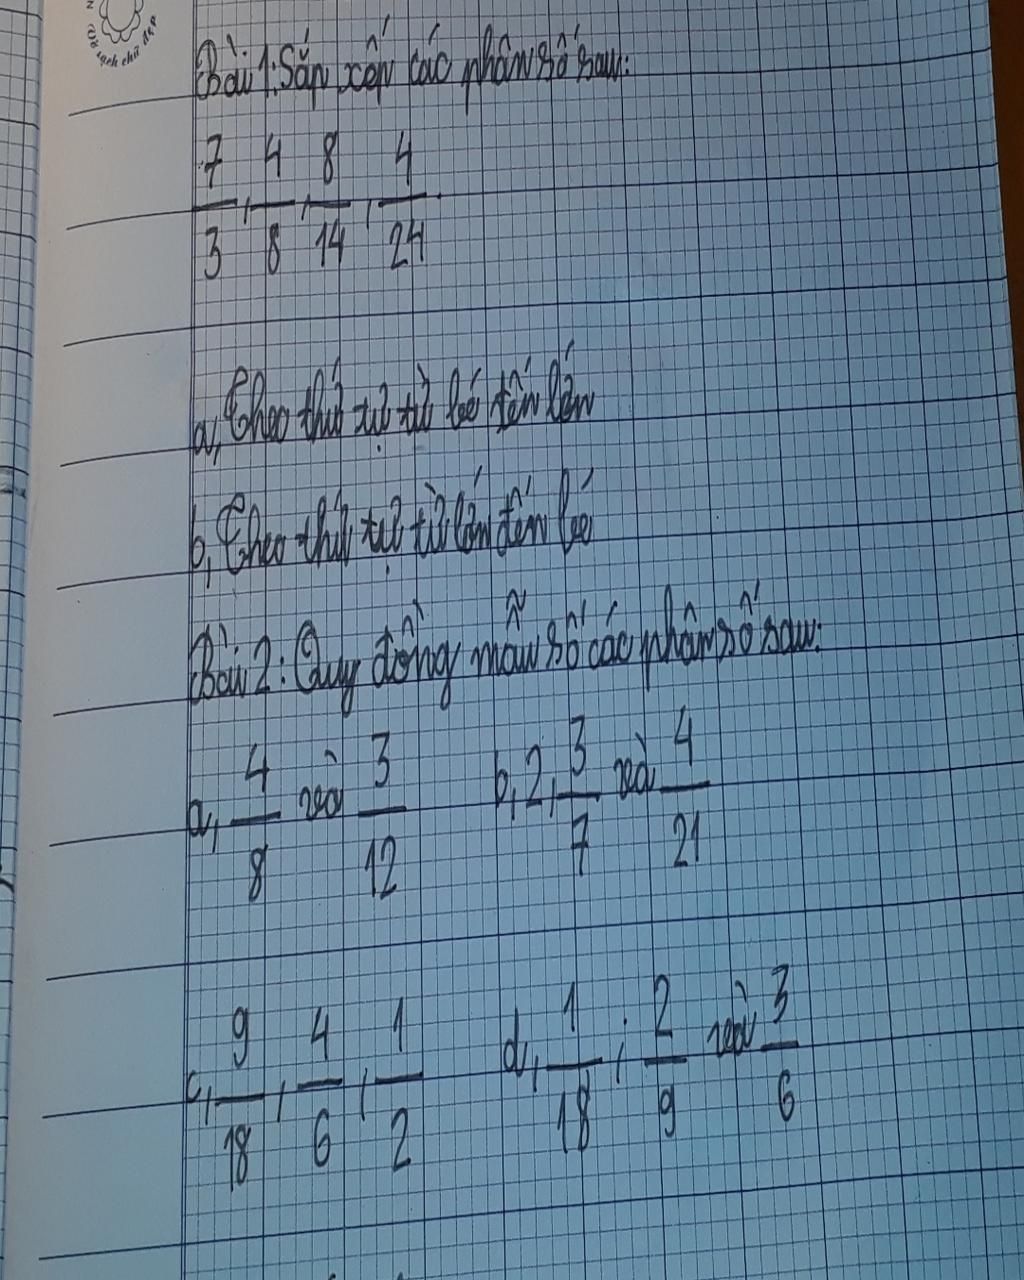 Vở sạch chữ đẹp
Bài 1: Sắp xếp các phân số sau:
7/3, 4/8, 8/14, 4/24
a, Theo thứ tự từ bé đến lớn
b, Theo thứ tự từ lớn đến bé
Bài 2: Quy đồng mẫu số các phân số sau:
a, 4/8 và 3/12 b, 2, 3/7 và 4/21
c, 9/18, 4/6, 1/2 d, 1/18; 2/9 và 3/6